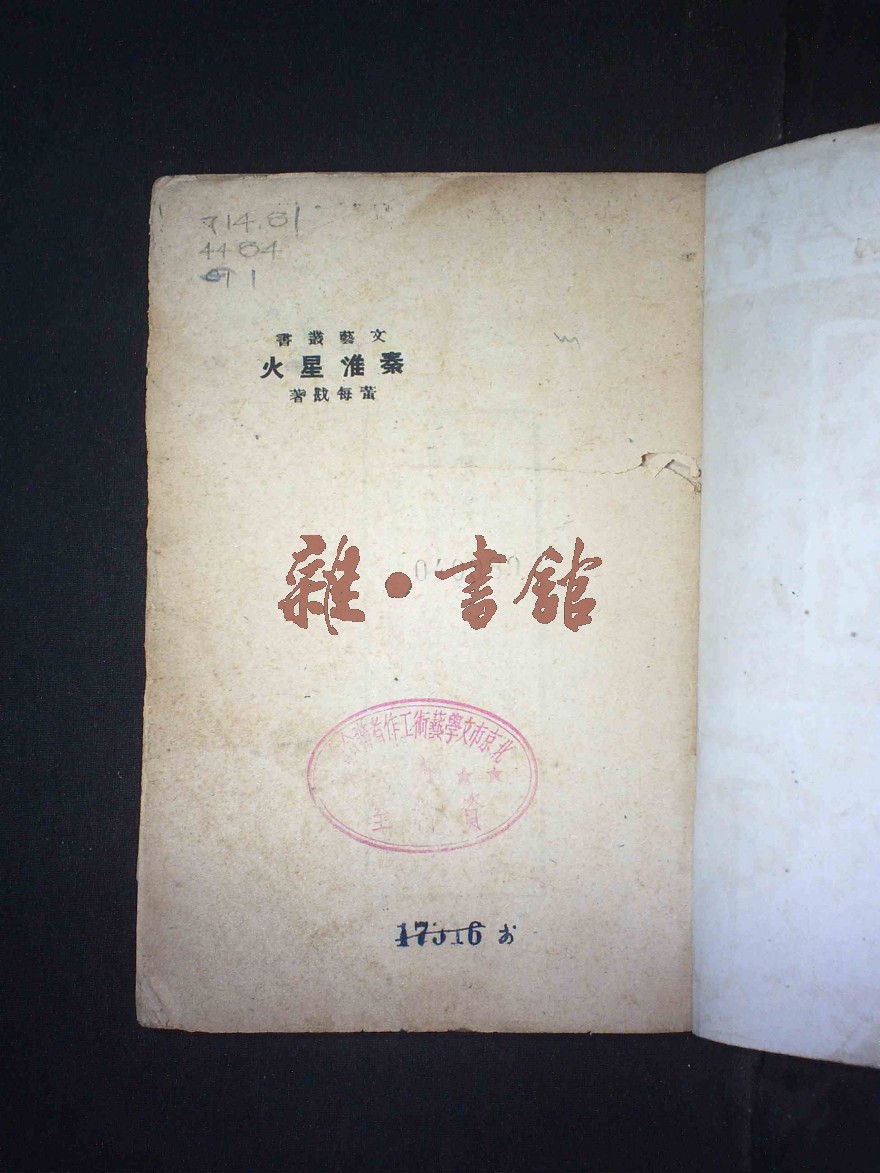 714.81
4484
書叢藝文
火星淮秦
著戡每董
雜·書館
北京市文學藝術工作者聯
資料室
17516